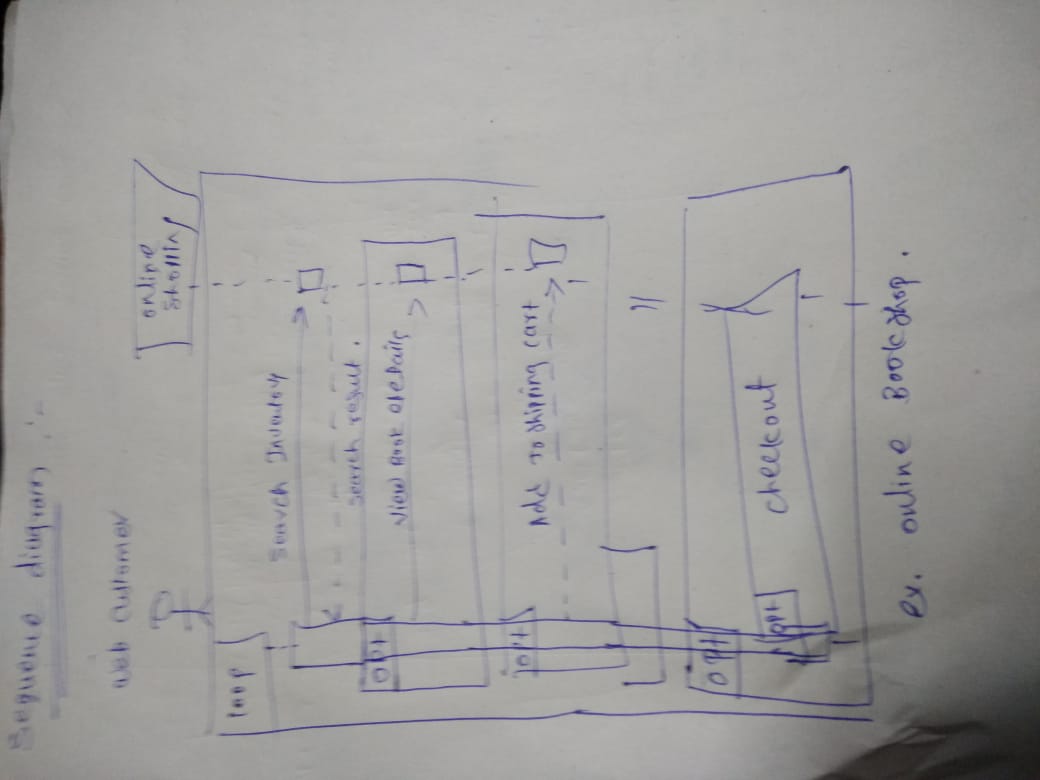 Sequence diagram :-
web customer
online
Shopping
loop
Search Inventory
search result.
opt
View Book details
opt
Add to shipping cart
opt
opt
checkout
ex. online Bookshop.